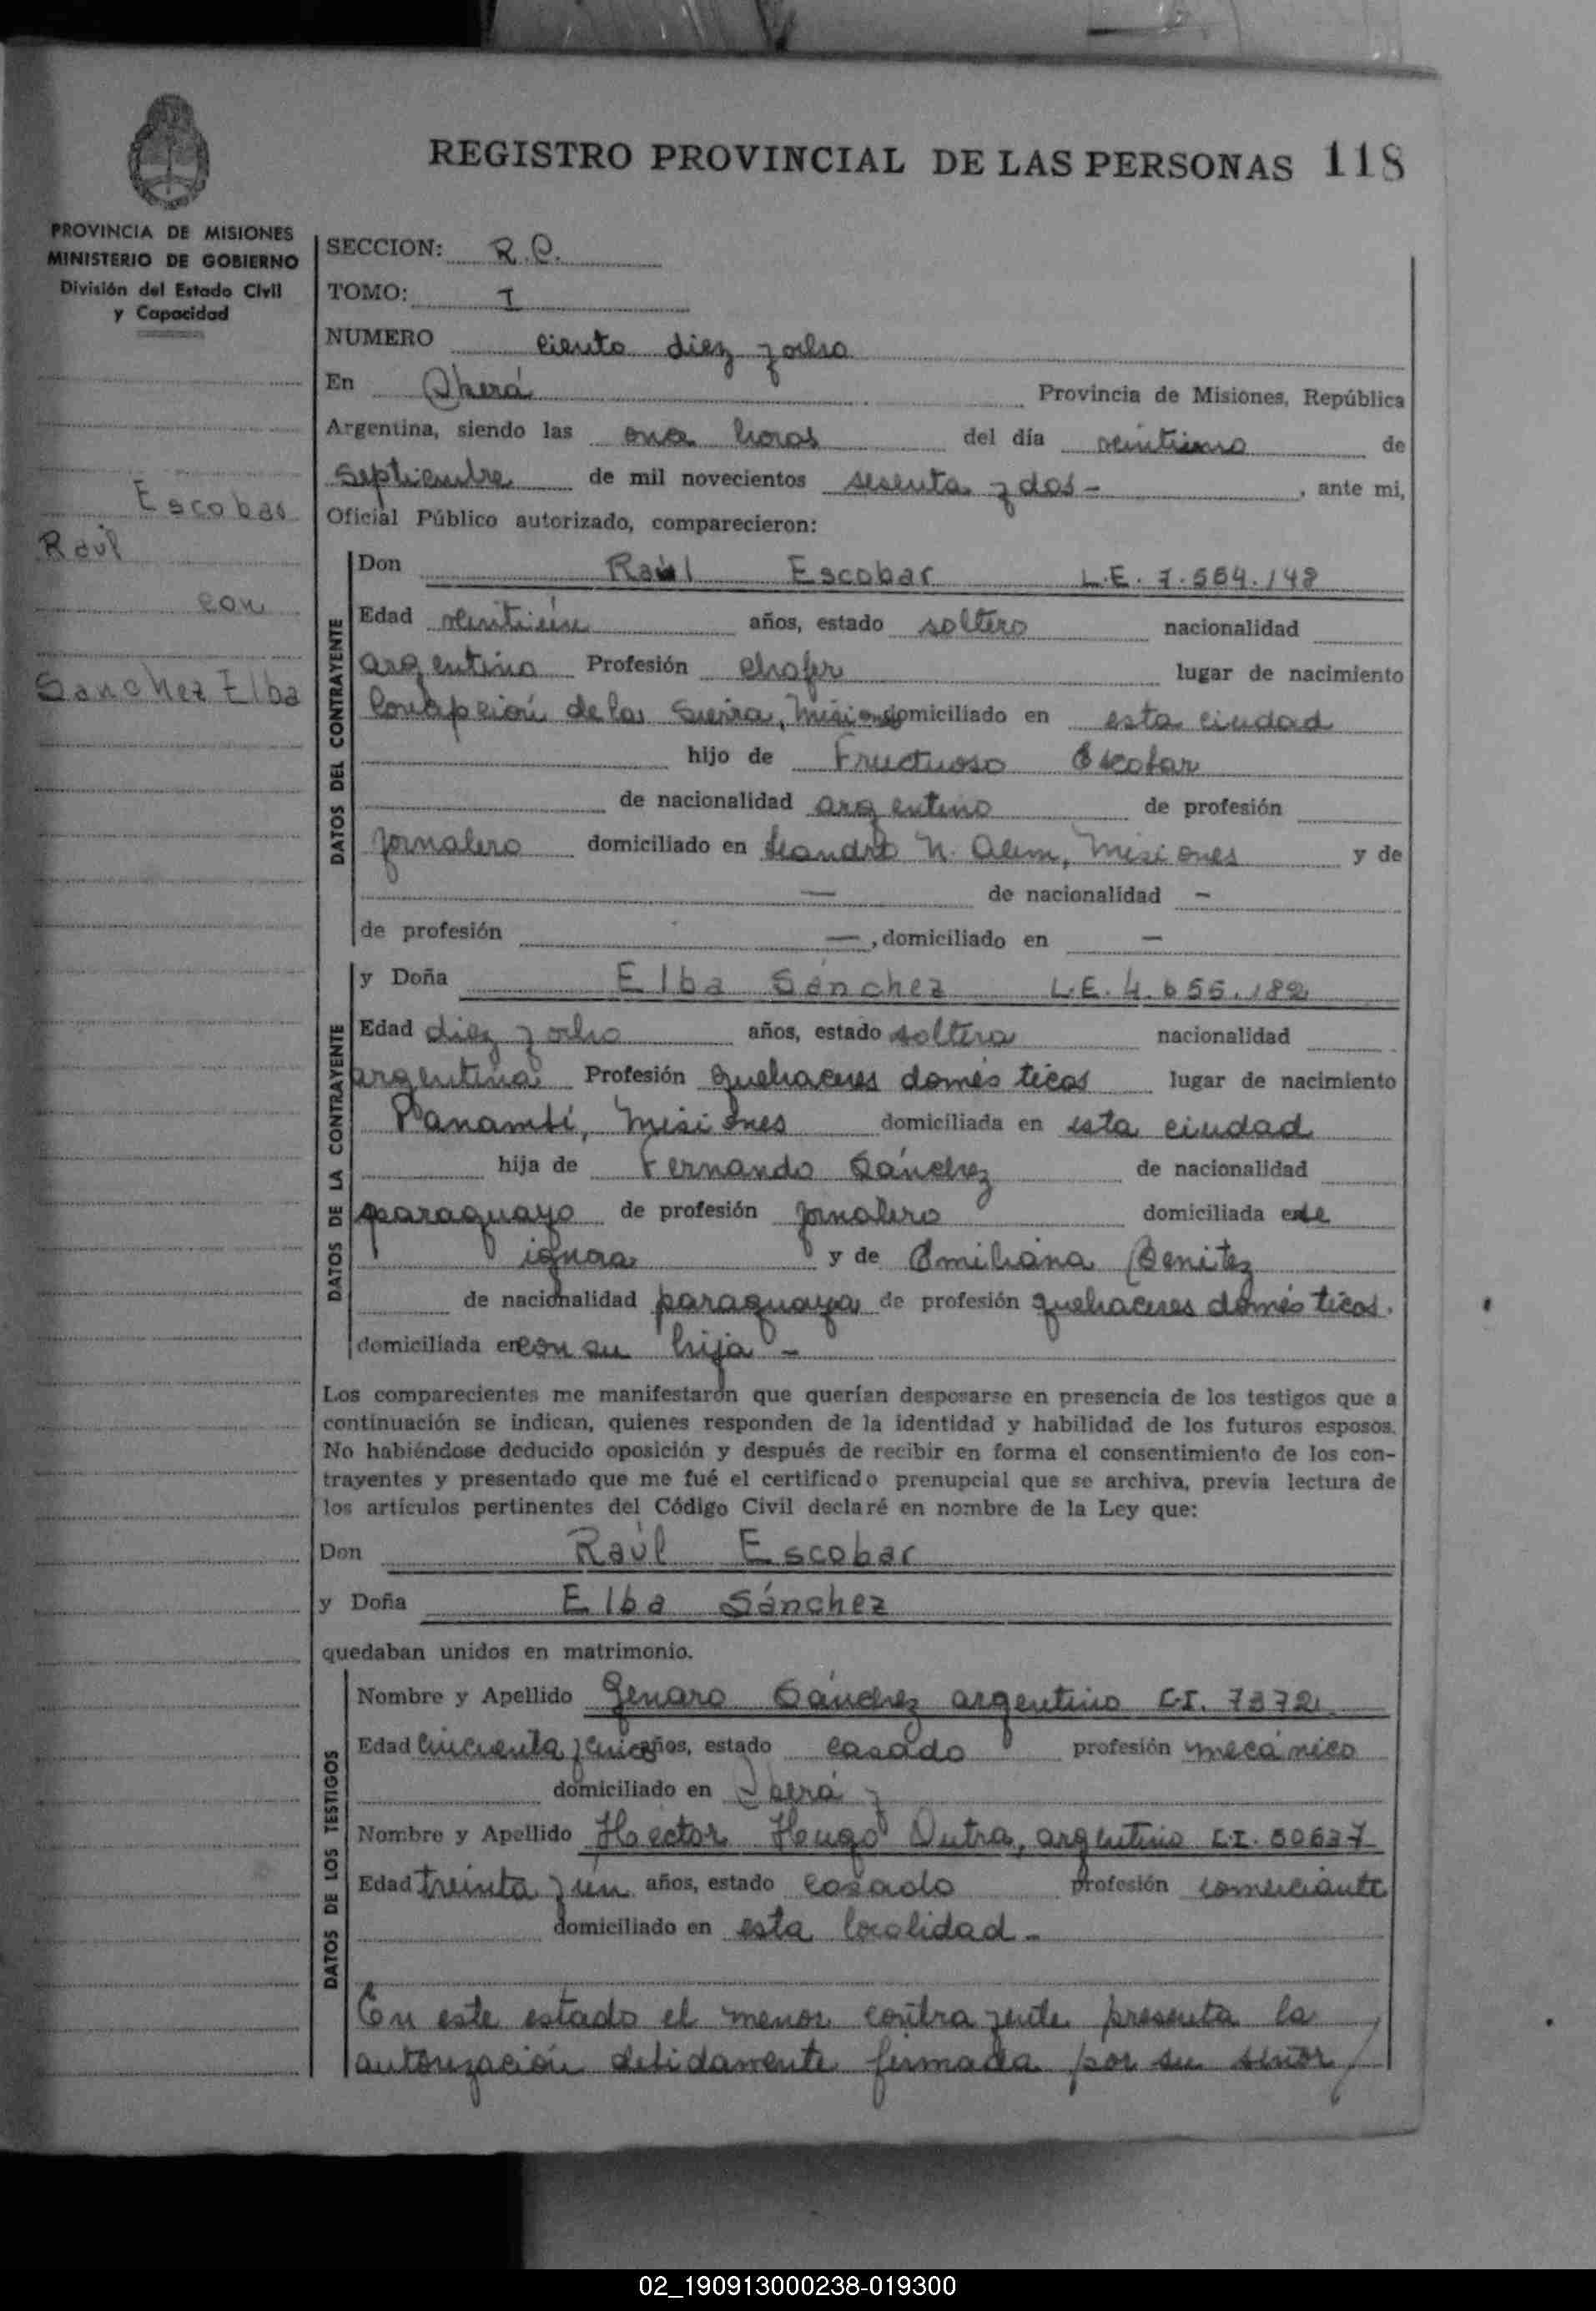 REGISTRO PROVINCIAL DE LAS PERSONAS 118
PROVINCIA DE MISIONES
MINISTERIO DE GOBIERNO
División del Estado Civil
y Capacidad
Escobar
Raúl
con
Sanchez Elba
SECCION: R.C.
TOMO: I
NUMERO ciento diez y ocho
En Oberá Provincia de Misiones, República
Argentina, siendo las once horas del día veintiuno de
Septiembre de mil novecientos sesenta y dos - , ante mi,
Oficial Público autorizado, comparecieron:
DATOS DEL CONTRAYENTE
Don Raúl Escobar L.E. 7.554.148
Edad veintiún años, estado soltero nacionalidad
argentino Profesión chofer lugar de nacimiento
Concepción de la Sierra, Misiones domiciliado en esta ciudad
hijo de Fructuoso Escobar
de nacionalidad argentino de profesión
jornalero domiciliado en Leandro N. Alem, Misiones y de
— de nacionalidad —
de profesión — , domiciliado en —
DATOS DE LA CONTRAYENTE
y Doña Elba Sánchez L.E. 4.655.182
Edad diez y ocho años, estado soltera nacionalidad
argentina Profesión quehaceres domésticos lugar de nacimiento
Panambí, Misiones domiciliada en esta ciudad
hija de Fernando Sánchez de nacionalidad
paraguayo de profesión jornalero domiciliada en se
ignora y de Emiliana Benitez
de nacionalidad paraguaya de profesión quehaceres domésticos.
domiciliada en con su hija -
Los comparecientes me manifestarón que querían desposarse en presencia de los testigos que a
continuación se indican, quienes responden de la identidad y habilidad de los futuros esposos.
No habiéndose deducido oposición y después de recibir en forma el consentimiento de los con-
trayentes y presentado que me fué el certificado prenupcial que se archiva, previa lectura de
los artículos pertinentes del Código Civil declaré en nombre de la Ley que:
Don Raúl Escobar
y Doña Elba Sánchez
quedaban unidos en matrimonio.
DATOS DE LOS TESTIGOS
Nombre y Apellido Genaro Sánchez argentino C.I. 7372
Edad cincuenta y cinco años, estado casado profesión mecánico
domiciliado en Oberá y
Nombre y Apellido Hector Hugo Dutra, argentino C.I. 50637
Edad treinta y un años, estado casado profesión comerciante
domiciliado en esta localidad -
En este estado el menor contrayente presenta la
autorización debidamente firmada por su señor
02_190913000238-019300